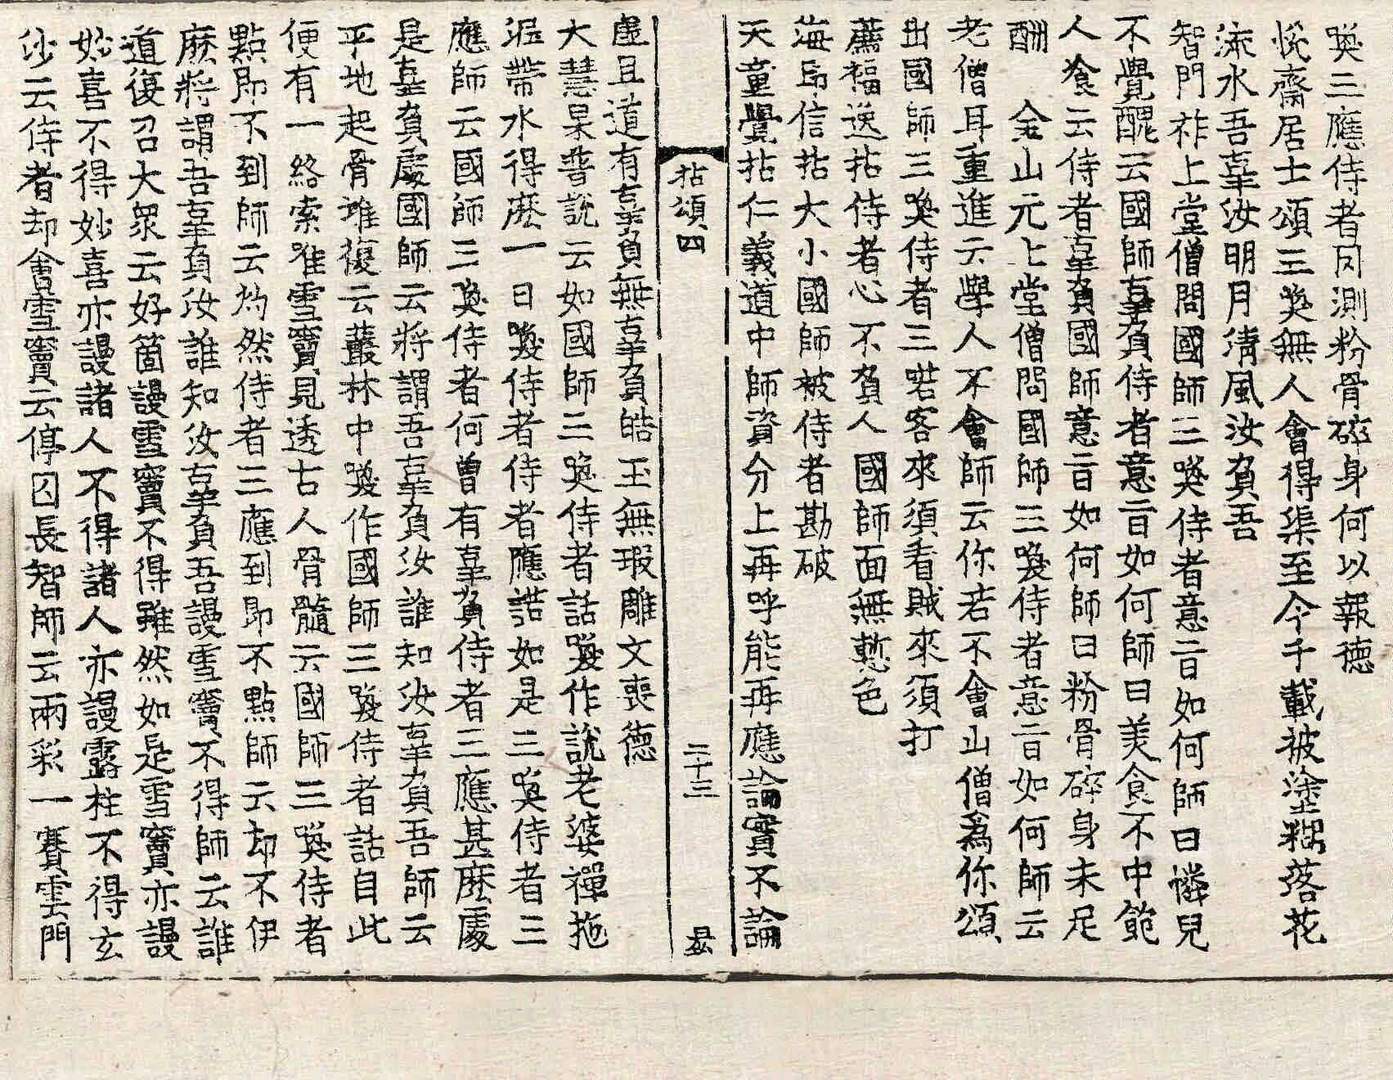 喚三應侍者罔測粉骨碎身何以報德
悅齋居士頌三喚無人會得渠至今千載被塗糊落花
流水吾辜汝明月清風汝負吾
智門祚上堂僧問國師三喚侍者意旨如何師曰憐兒
不覺醜云國師辜負侍者意旨如何師曰美食不中飽
人飡云侍者辜負國師意旨如何師曰粉骨碎身未足
酬　金山元上堂僧問國師三喚侍者意旨如何師云
老僧耳重進云學人不會師云你若不會山僧爲你頌
出國師三喚侍者三喏客來須看賊來須打
薦福逸拈侍者心不負人國師面無慙色
海印信拈大小國師被侍者勘破
天童覺拈仁義道中師資分上再呼能再應論實不論
拈頌四　二十三
虛且道有辜負無辜負皓玉無瑕雕文喪德
大慧杲普說云如國師三喚侍者話喚作說老婆禪拖
泥帶水得麽一日喚侍者侍者應諾如是三喚侍者三
應師云國師三喚侍者何曾有辜負侍者三應甚麽處
是辜負處國師云將謂吾辜負汝誰知汝辜負吾師云
平地起骨堆復云叢林中喚作國師三喚侍者話自此
便有一絡索唯雪竇見透古人骨髓云國師三喚侍者
點即不到師云灼然侍者三應到即不點師云却不伊
麽將謂吾辜負汝誰知汝辜負吾謾雪竇不得師云誰
道復召大衆云好箇謾雪竇不得雖然如是雪竇亦謾
妙喜不得妙喜亦謾諸人不得諸人亦謾露柱不得玄
沙云侍者却會雪竇云停囚長智師云兩彩一賽雲門